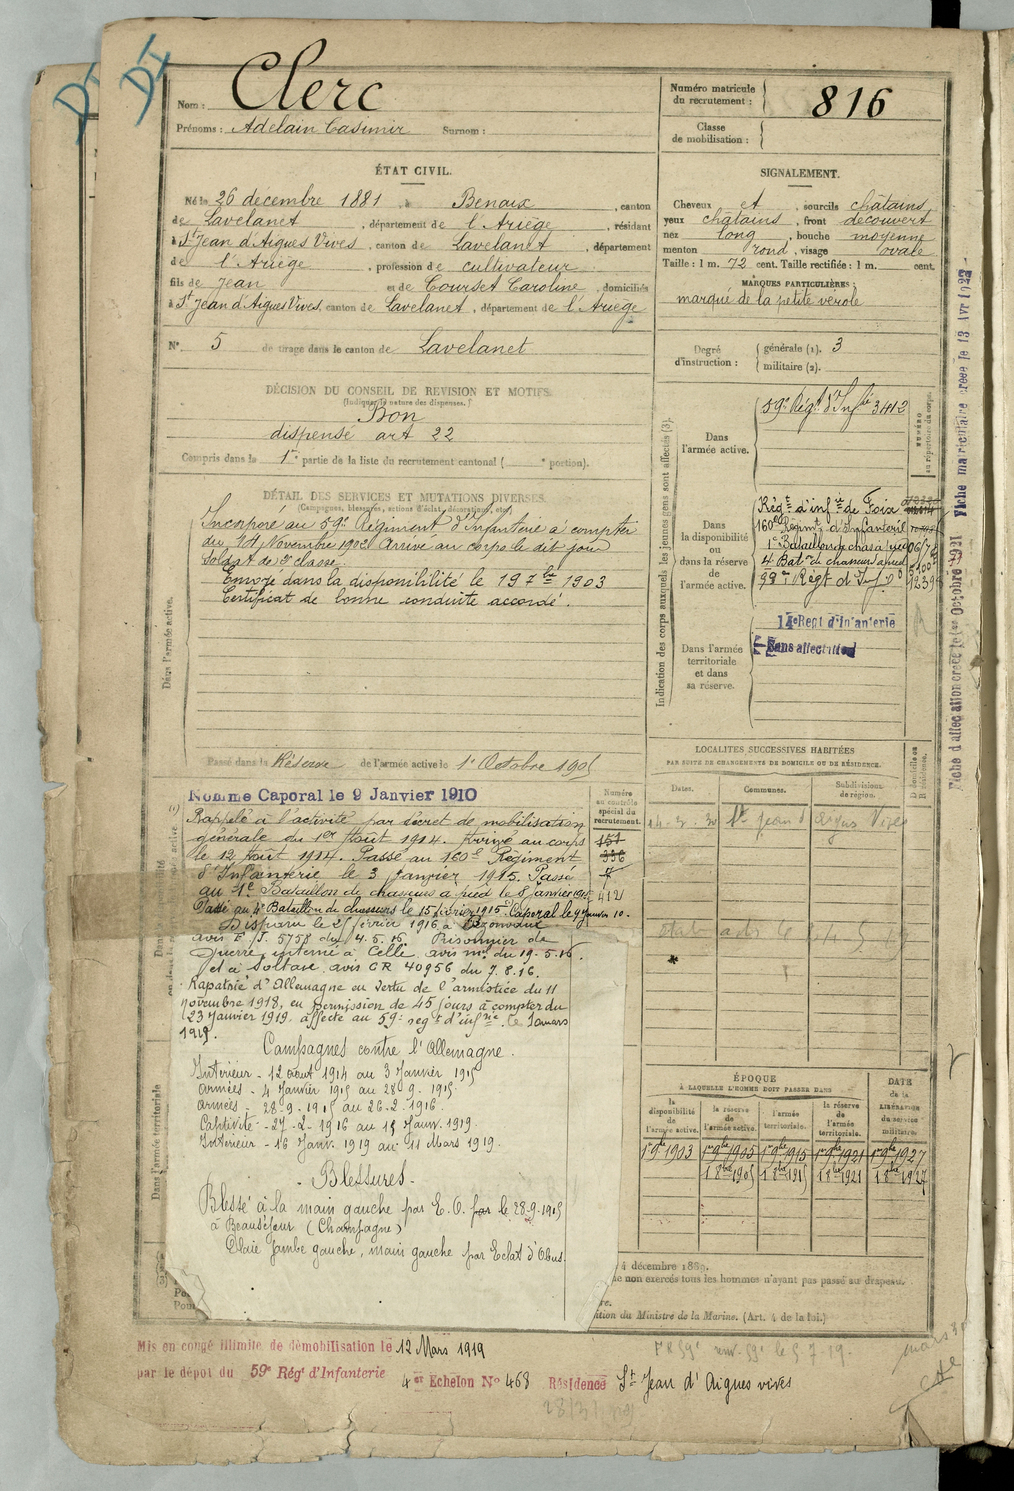 DI
DI
Nom : Clerc
Prénoms : Adelain Casimir Surnom :
Numéro matricule
du recrutement : 816
Classe
de mobilisation :
ÉTAT CIVIL.
Né le 26 décembre 1881, à Benaix, canton
de Lavelanet, département de l'Ariège, résidant
à St Jean d'Aigues Vives, canton de Lavelanet, département
de l'Ariège, profession de cultivateur
fils de Jean et de Courset Caroline, domiciliés
à St Jean d'Aigues Vives, canton de Lavelanet, département de l'Ariège
N° 5 de tirage dans le canton de Lavelanet
SIGNALEMENT.
Cheveux et, sourcils châtains
yeux châtains, front découvert
nez long, bouche moyenne
menton rond, visage ovale
Taille : 1 m. 72 cent. Taille rectifiée : 1 m. cent.
MARQUES PARTICULIÈRES :
marqué de la petite vérole
Degré
d'instruction :
générale (1). 3
militaire (2).
DÉCISION DU CONSEIL DE REVISION ET MOTIFS.
(Indiquer la nature des dispenses.)
Bon
dispensé art 22
Compris dans la 1re partie de la liste du recrutement cantonal ( e portion).
DÉTAIL DES SERVICES ET MUTATIONS DIVERSES.
(Campagnes, blessures, actions d'éclat, décorations, etc.)
Dans l'armée active.
Incorporé au 59e Régiment d'Infanterie à compter
du 14 Novembre 1902 Arrivé au corps le dit jour
soldat de 2e classe.
Envoyé dans la disponibilité le 19 7bre 1903
Certificat de bonne conduite accordé.
Passé dans la Réserve de l'armée active le 1er Octobre 1905
Indication des corps auxquels les jeunes gens sont affectés (3).
NUMÉRO
au répertoire du corps.
Dans
l'armée active.
59e Régt d'Infie 3412
Dans
la disponibilité
ou
dans la réserve
de
l'armée active.
Régt d'infie de Foix
160e Régimt d'Infanterie
1er Bataillon de chas à pied 06/78
4e Batn de chasseurs à pied 5100
59e Régt d'Inf 1239
Dans l'armée
territoriale
et dans
sa réserve.
14e Regt d'Infanterie
Sans affectation
Fiche d'affectation créée le 1er Octobre 1921
Fiche matriculaire créée le 13 Avr 1922
Nommé Caporal le 9 Janvier 1910
Numéro
au contrôle
spécial du
recrutement.
151
336
412
Rappelé à l'activité par décret de mobilisation
générale du 1er Août 1914. Arrivé au corps
le 12 Août 1914. Passé au 160e Régiment
d'Infanterie le 3 Janvier 1915. Passé
au 1e Bataillon de chasseurs à pied le 8 Janvier 1915
Passé au 4e Bataillon de chasseurs le 15 février 1915. Caporal le 9 Janvier 10.
Disparu le 25 février 1916 à Bezonvaux
avis F/J. 5758 du 4.5.16. Prisonnier de
Guerre interné à Celle, avis ml du 19-5-16.
et à Soltau, avis CR 40956 du 7.8.16.
Rapatrié d'Allemagne en vertu de l'armistice du 11
novembre 1918, en permission de 45 jours à compter du
23 Janvier 1919. affecté au 59e regt d'infrie. le 1 mars
1919.
Campagnes contre l'Allemagne.
Intérieur - 12 aout 1914 au 3 Janvier 1915
Armées - 4 Janvier 1915 au 28-9-1915.
Armées - 28-9-1915 au 26-2-1916.
Captivité - 27-2-1916 au 15 Janv. 1919.
Intérieur - 16 Janv. 1919 au 11 Mars 1919.
- Blessures -
Blessé à la main gauche par E.O. le 28-9-1915
à Beauséjour (Champagne)
Plaie jambe gauche, main gauche par Eclat d'Obus.
LOCALITÉS SUCCESSIVES HABITÉES
PAR SUITE DE CHANGEMENTS DE DOMICILE OU DE RÉSIDENCE.
Dates.
Communes.
Subdivisions
de région.
St Jean d'Aigues Vives
ÉPOQUE
À LAQUELLE L'HOMME DOIT PASSER DANS
la
disponibilité
de
l'armée active.
la réserve
de
l'armée active.
l'armée
territoriale.
la réserve
de
l'armée
territoriale.
DATE
de la
LIBÉRATION
du service
militaire.
1er 9bre 1903 1er 9bre 1905 1er 9bre 1915 1er 9bre 1921 1er 9bre 1927
1 8bre 1905 1 8bre 1915 1 8bre 1921 1 8bre 1927
4 décembre 1889.
ne non exercés tous les hommes n'ayant pas passé au drapeau.
ition du Ministre de la Marine. (Art. 4 de la loi.)
Mis en congé illimité de démobilisation le 12 Mars 1919
par le dépôt du 59e Rég' d'Infanterie
4er Echelon N° 463 Résidence St Jean d'Aigues vives